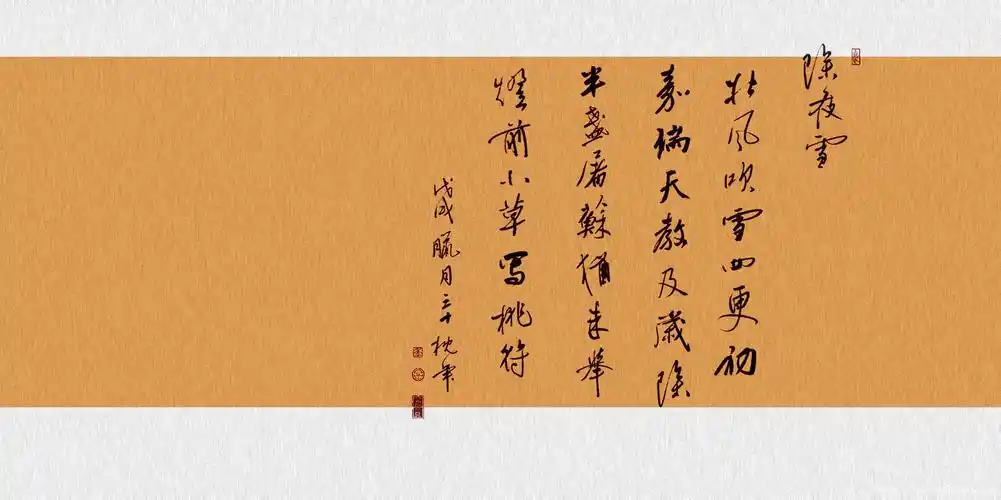 除夜雪
北风吹雪四更初
嘉瑞天教及歲除
半盏屠蘇猶未舉
燈前小草写桃符
戊戌臘月三十枕